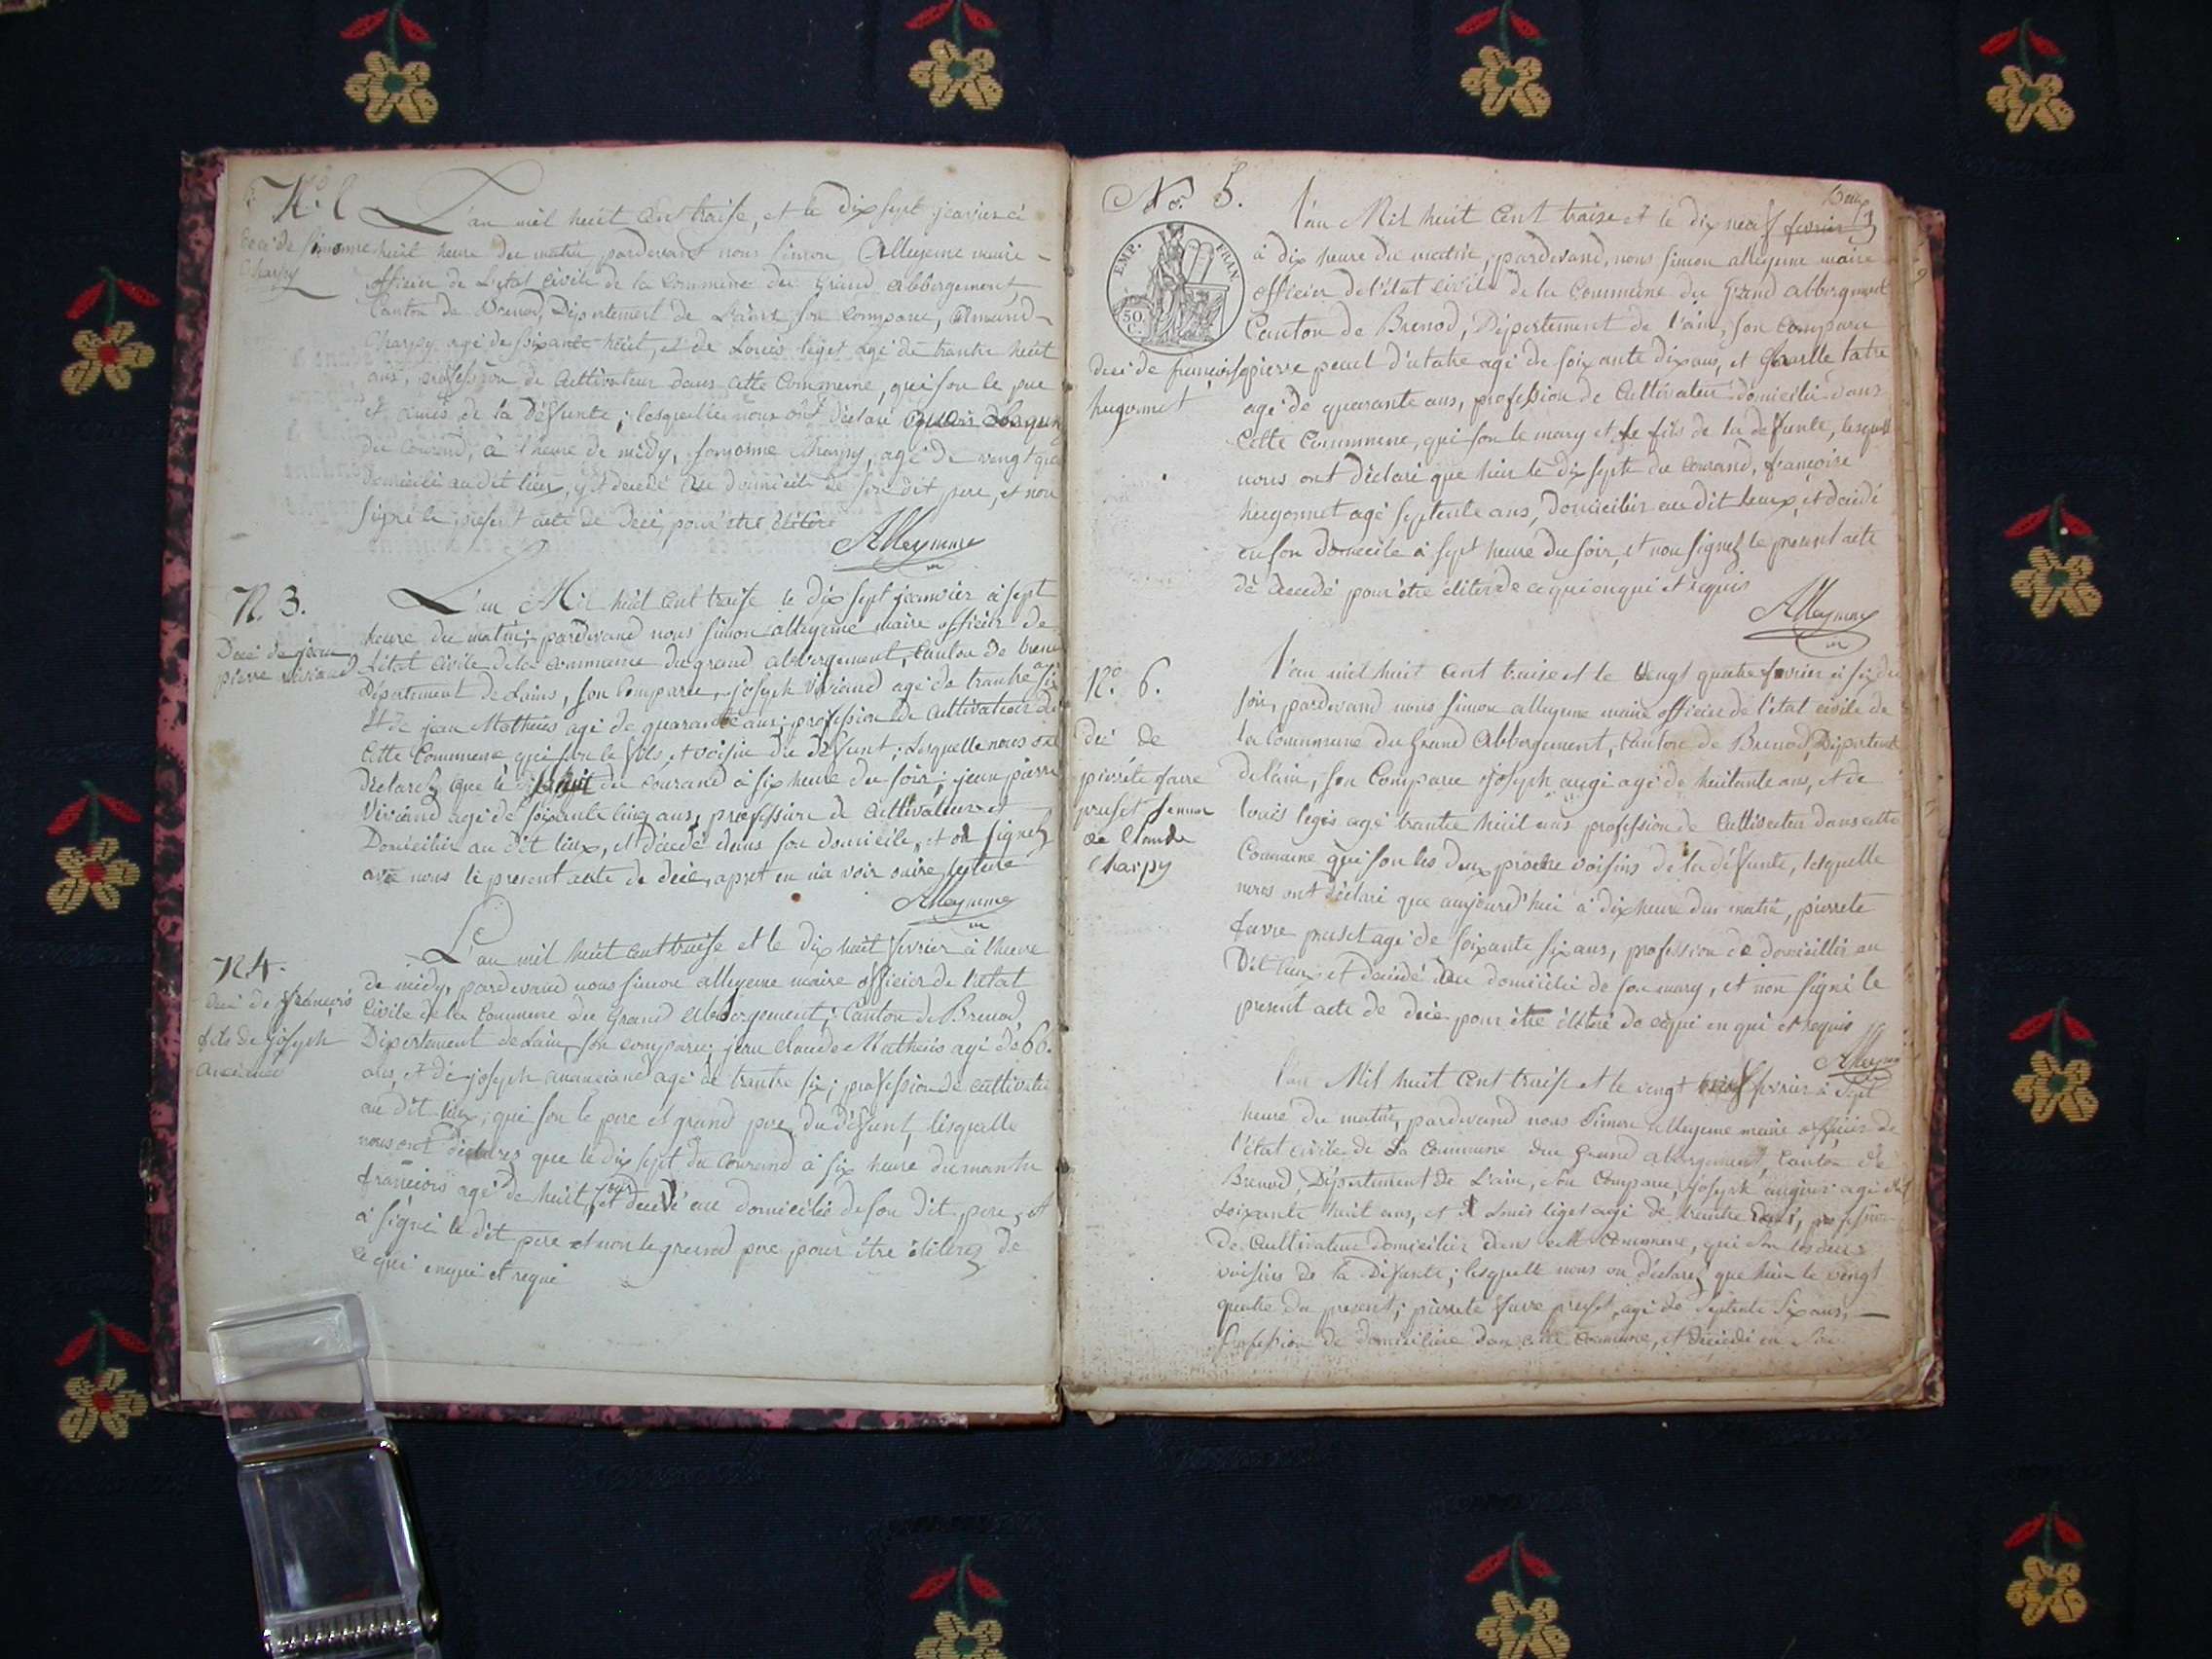 L'an mil huit Cent traise, et le dix sept jeanvier à
huit heure du matin pardevant nous simon Alleyeme maire
officier de L'etat Civile de la Commune du Grand abbergement
Canton de Brenod, Département de Lains son Comparu,
Charpy agé de soixante huit, et de Louis leget agé de trantre huit
ans, profession de Cultivateur dans Cette Commune, qui son le pere
et amis de la Défunte; lesquelle nous ont déclaré
du Courand, à l'heure de midy, simonne Charpy, agé de vengt
domicilié au dit lieu, et décedé au domicile de son dit pere, et non
signé le present acte de decé, pour etre
Alleyeme
N. 3.
Decé de jean
pierre viviand
L'an Mil huit Cent traise le dix sept jeanvier à sept
heure du matin; pardevand nous simon alleyeme maire officier de
L'état Civile de la Commune du grand abbergement, Canton de
Département de Lains, son Comparu, joseph viviand agé de trantre six
Et de jean Mathieus agé de quarante ans; profession de Cultivateur de
Cette Commune qui son le fils, et voisin du défunt; Lesquelle nous
déclarez que le du Courand à six heure du soir; jean pierre
Viviand agé de soixante Cinq ans, profession de Cultivateur et
Domicilier au dit lieux, et décedé dans son domicile, et on signez
avec nous le present acte de decé, apret en
Alleyeme
N 4.
decé de françois
fils de joseph
L'an mil huit Cent traise et le dix huit fevrier à l'heure
de midy, pardevand nous simon alleyeme maire officier de l'état
Civile de la Commune du Grand abbergement, Canton de Brenod
Département de Lain, son comparu; jean Claude Mathieus agé de 66.
ans, et de joseph agé de trantre six; profession de cultivateur
au dit lieux; qui son le pere et grand pere du défunt, lesquelle
nous ont déclarez que le dix sept du Courand à six heure du mantin
françois agé de huit jour, et decedé au domicilie de son dit pere, et
à signé le dit pere et non le grand pere pour être
ce qui enqui et requi
No. 5.
EMP. FRAN.
50 C.
decé de françoise
hugonnet
l'an Mil huit Cent traise et le dix neuf fevrier
à dix heure du matin, pardevand, nous simon alleyeme maire
officier de l'état civile de la Commune du Grand abbergement
Canton de Brenod, Département de l'ain, son Comparu
pierre
agé de soixante dix ans, et
agé de quarante ans, profession de Cultivateur domicilié dans
Cette Commune, qui son le mary et le fils de la défunte, lesquelle
nous ont déclaré que hier le dix septe du Courand, françoise
hugonnet agé septente ans, domicilier au dit lieux, et décedé
en son domicile à sept heure du soir, et non signez le present acte
dé decedé pour être de ce qui enqui et requis
Alleyeme
No. 6.
decé de
pierrete favre
preset femme
de Claude
Charpy
l'an mil huit Cent traise et le vengt quatre fevrier à six du
soir, pardevand nous simon alleyeme maire officier de l'état civile de
la Commune du Grand Abbergement, Canton de Brenod, Département
de l'ain, son Comparu joseph augi agé de huitante ans, et de
louis leges agé trantre huit ans profession de Cultivateur dans cette
Commune qui son les deux proche voisins de la défunte, lesquelle
nous ont déclaré que aujourd'hui à dix heure du matin, pierrete
favre preset agé de soixante six ans, profession de domicillié au
Dit lieux et decédé au domicilié de son mary, et non signé le
present acte de decé pour être de cequi enqui et requis
l'an Mil huit Cent traise et le vengt fevrier à sept
heure du matin, pardevand nous simon alleyeme maire officier de
l'état civile de la Commune du Grand abergement, Canton de
Brenod, Département de L'ain, son Comparu, joseph agé de
soixante huit ans, et Louis leget agé de trentre
De Cultivateur domicilier dans cette Commune, qui son les deux
voisins de la Défunte; lesquelle nous on déclarez que hier le vengt
quatre du present; pierrete favre preset, agé de septente six ans,
profession de domicilière dans cette Commune, et decédé en son